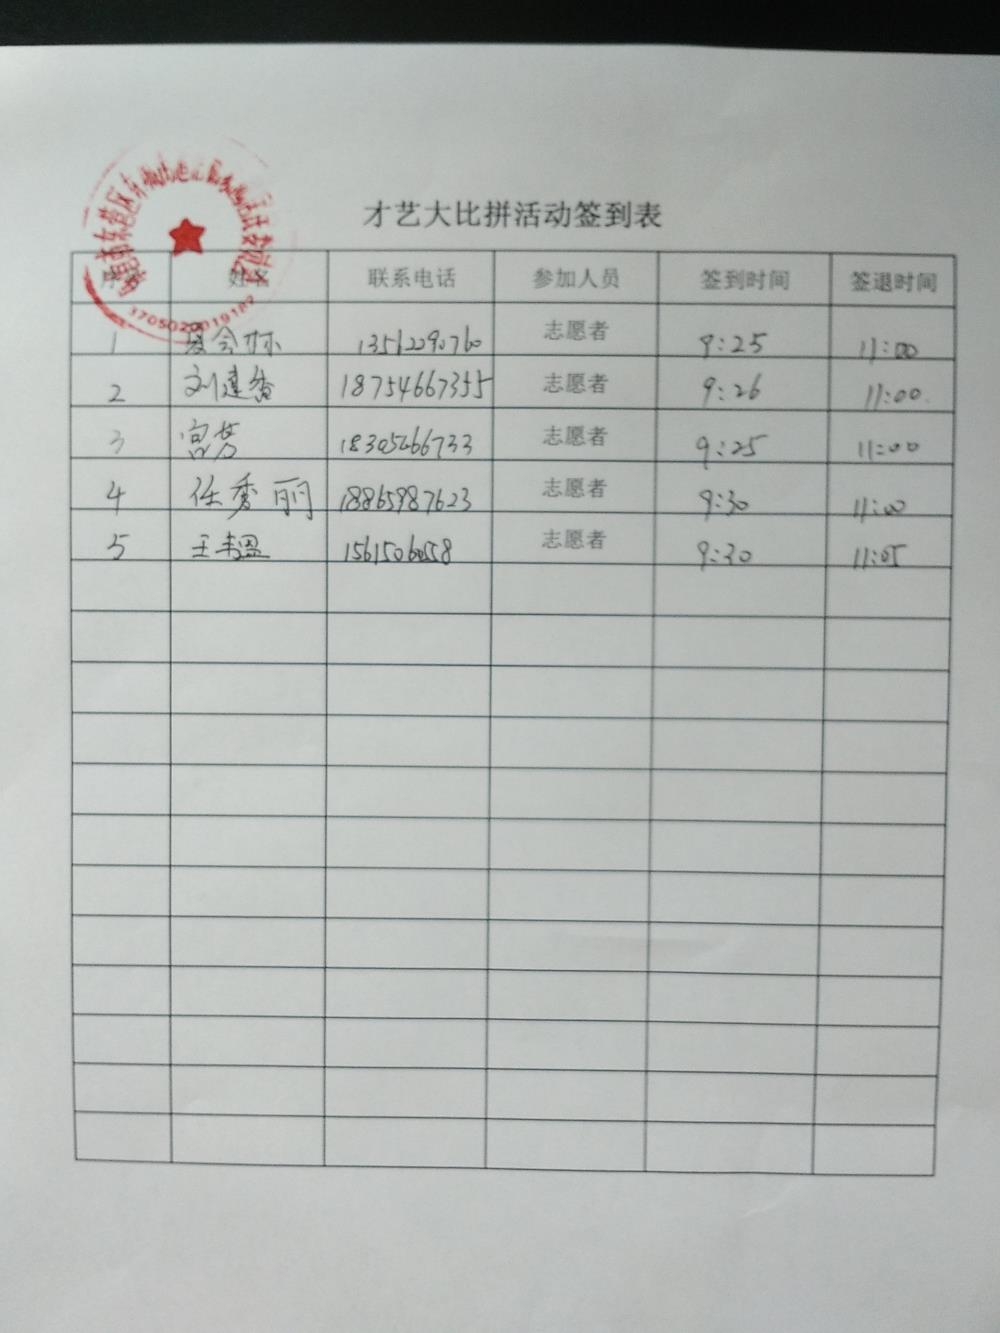 才艺大比拼活动签到表
序号 姓名 联系电话 参加人员 签到时间 签退时间
3705020019182
1 夏会林 13562290760 志愿者 9:25 11:00
2 刘建香 18754667355 志愿者 9:26 11:00
3 宫芳 18305466733 志愿者 9:25 11:00
4 任秀丽 18865987623 志愿者 9:30 11:00
5 王 15615060558 志愿者 9:30 11:05